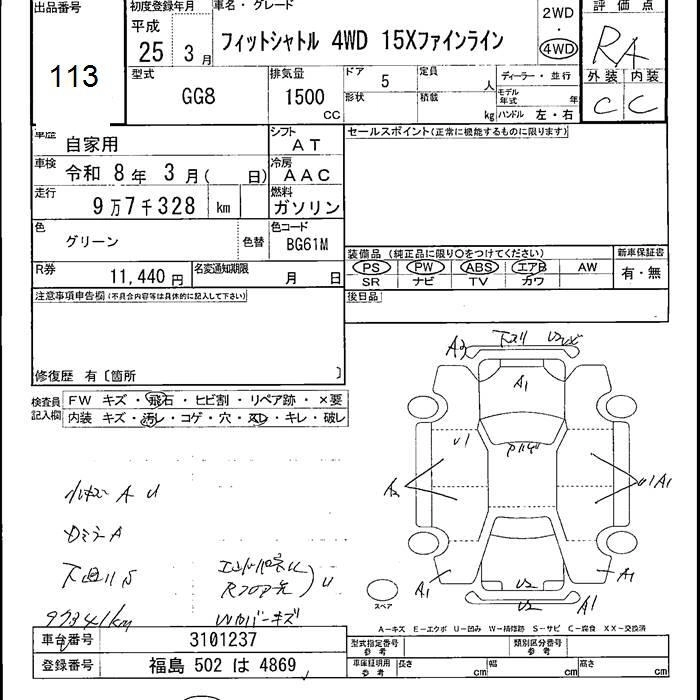 出品番号 初度登録年月 車名・グレード 評価点
平成 2WD
25 3月 フィットシャトル 4WD 15Xファインライン 4WD RA
113 型式 排気量 ドア 5 定員 人 ディーラー・並行 外装 内装
GG8 1500 cc 形状 積載 kg モデル年式 年 ハンドル 左・右 C C
車歴 自家用 シフト AT セールスポイント(正常に機能するものに限ります)
車検 令和 8年 3月( 日) 冷房 AAC
走行 9万7千328 km 燃料 ガソリン
色 グリーン 色替 色コード BG61M 装備品 (純正品に限り○をつけてください) 新車保証書
R券 11,440円 名変通知期限 月 日 PS PW ABS エアB AW 有・無
SR ナビ TV カワ
注意事項申告欄(不具合内容等は具体的に記入して下さい) 後日品
修復歴 有〔箇所 〕
検査員 FW キズ・飛石・ヒビ割・リペア跡・×要
記入欄 内装 キズ・汚レ・コゲ・穴・スレ・キレ・破レ
A2 下スリ U2
A1
U1
A2 U1 A1
小キズ A U
カミラ A
下廻りS エンドパネルU
Rフロア先 U
97341km Wカバーキズ
A1 U2 A1
スペア U2 A1
A-キズ E-エクボ U-凹み W-補修跡 S-サビ C-腐食 XX-交換済
車台番号 3101237 型式指定番号 参考 類別区分番号 参考
登録番号 福島 502 は 4869 車庫証明用 参考 長さ cm 幅 cm 高さ cm